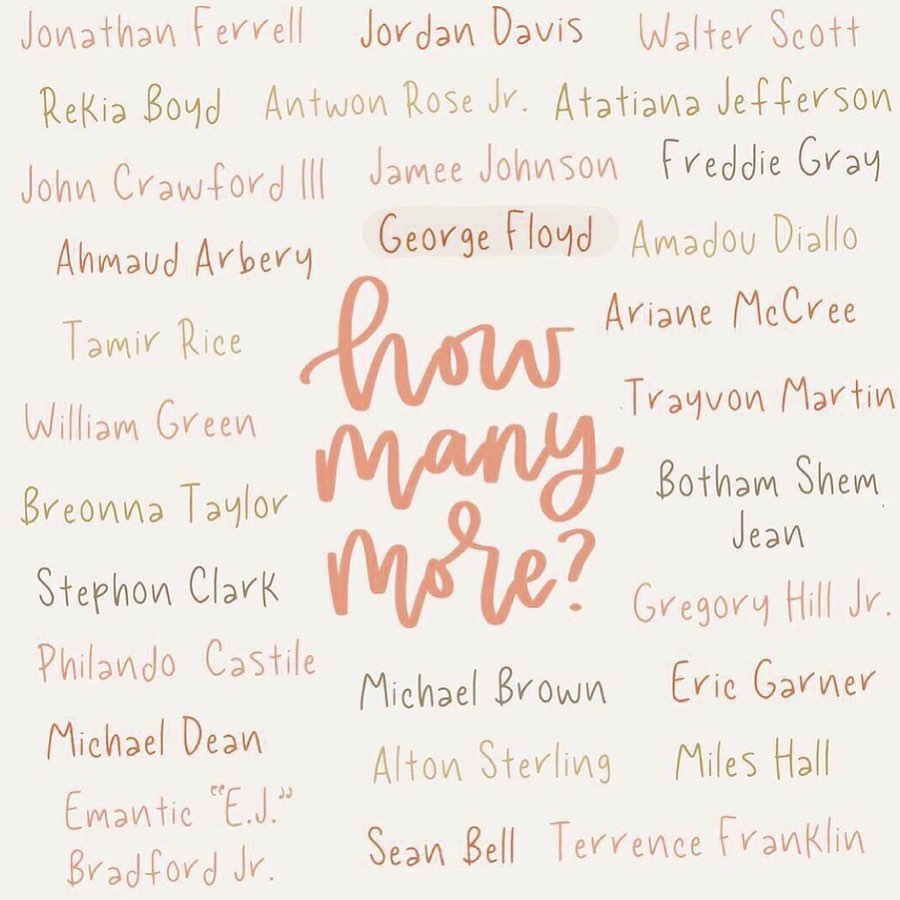 Jonathan Ferrell Jordan Davis Walter Scott
Rekia Boyd Antwon Rose Jr. Atatiana Jefferson
John Crawford III Jamee Johnson Freddie Gray
Ahmaud Arbery George Floyd Amadou Diallo
Ariane McCree
Tamir Rice
how
many
more?
Trayvon Martin
William Green
Botham Shem
Jean
Breonna Taylor
Stephon Clark
Gregory Hill Jr.
Philando Castile
Michael Brown Eric Garner
Michael Dean
Alton Sterling Miles Hall
Emantic "E.J."
Bradford Jr.
Sean Bell Terrence Franklin